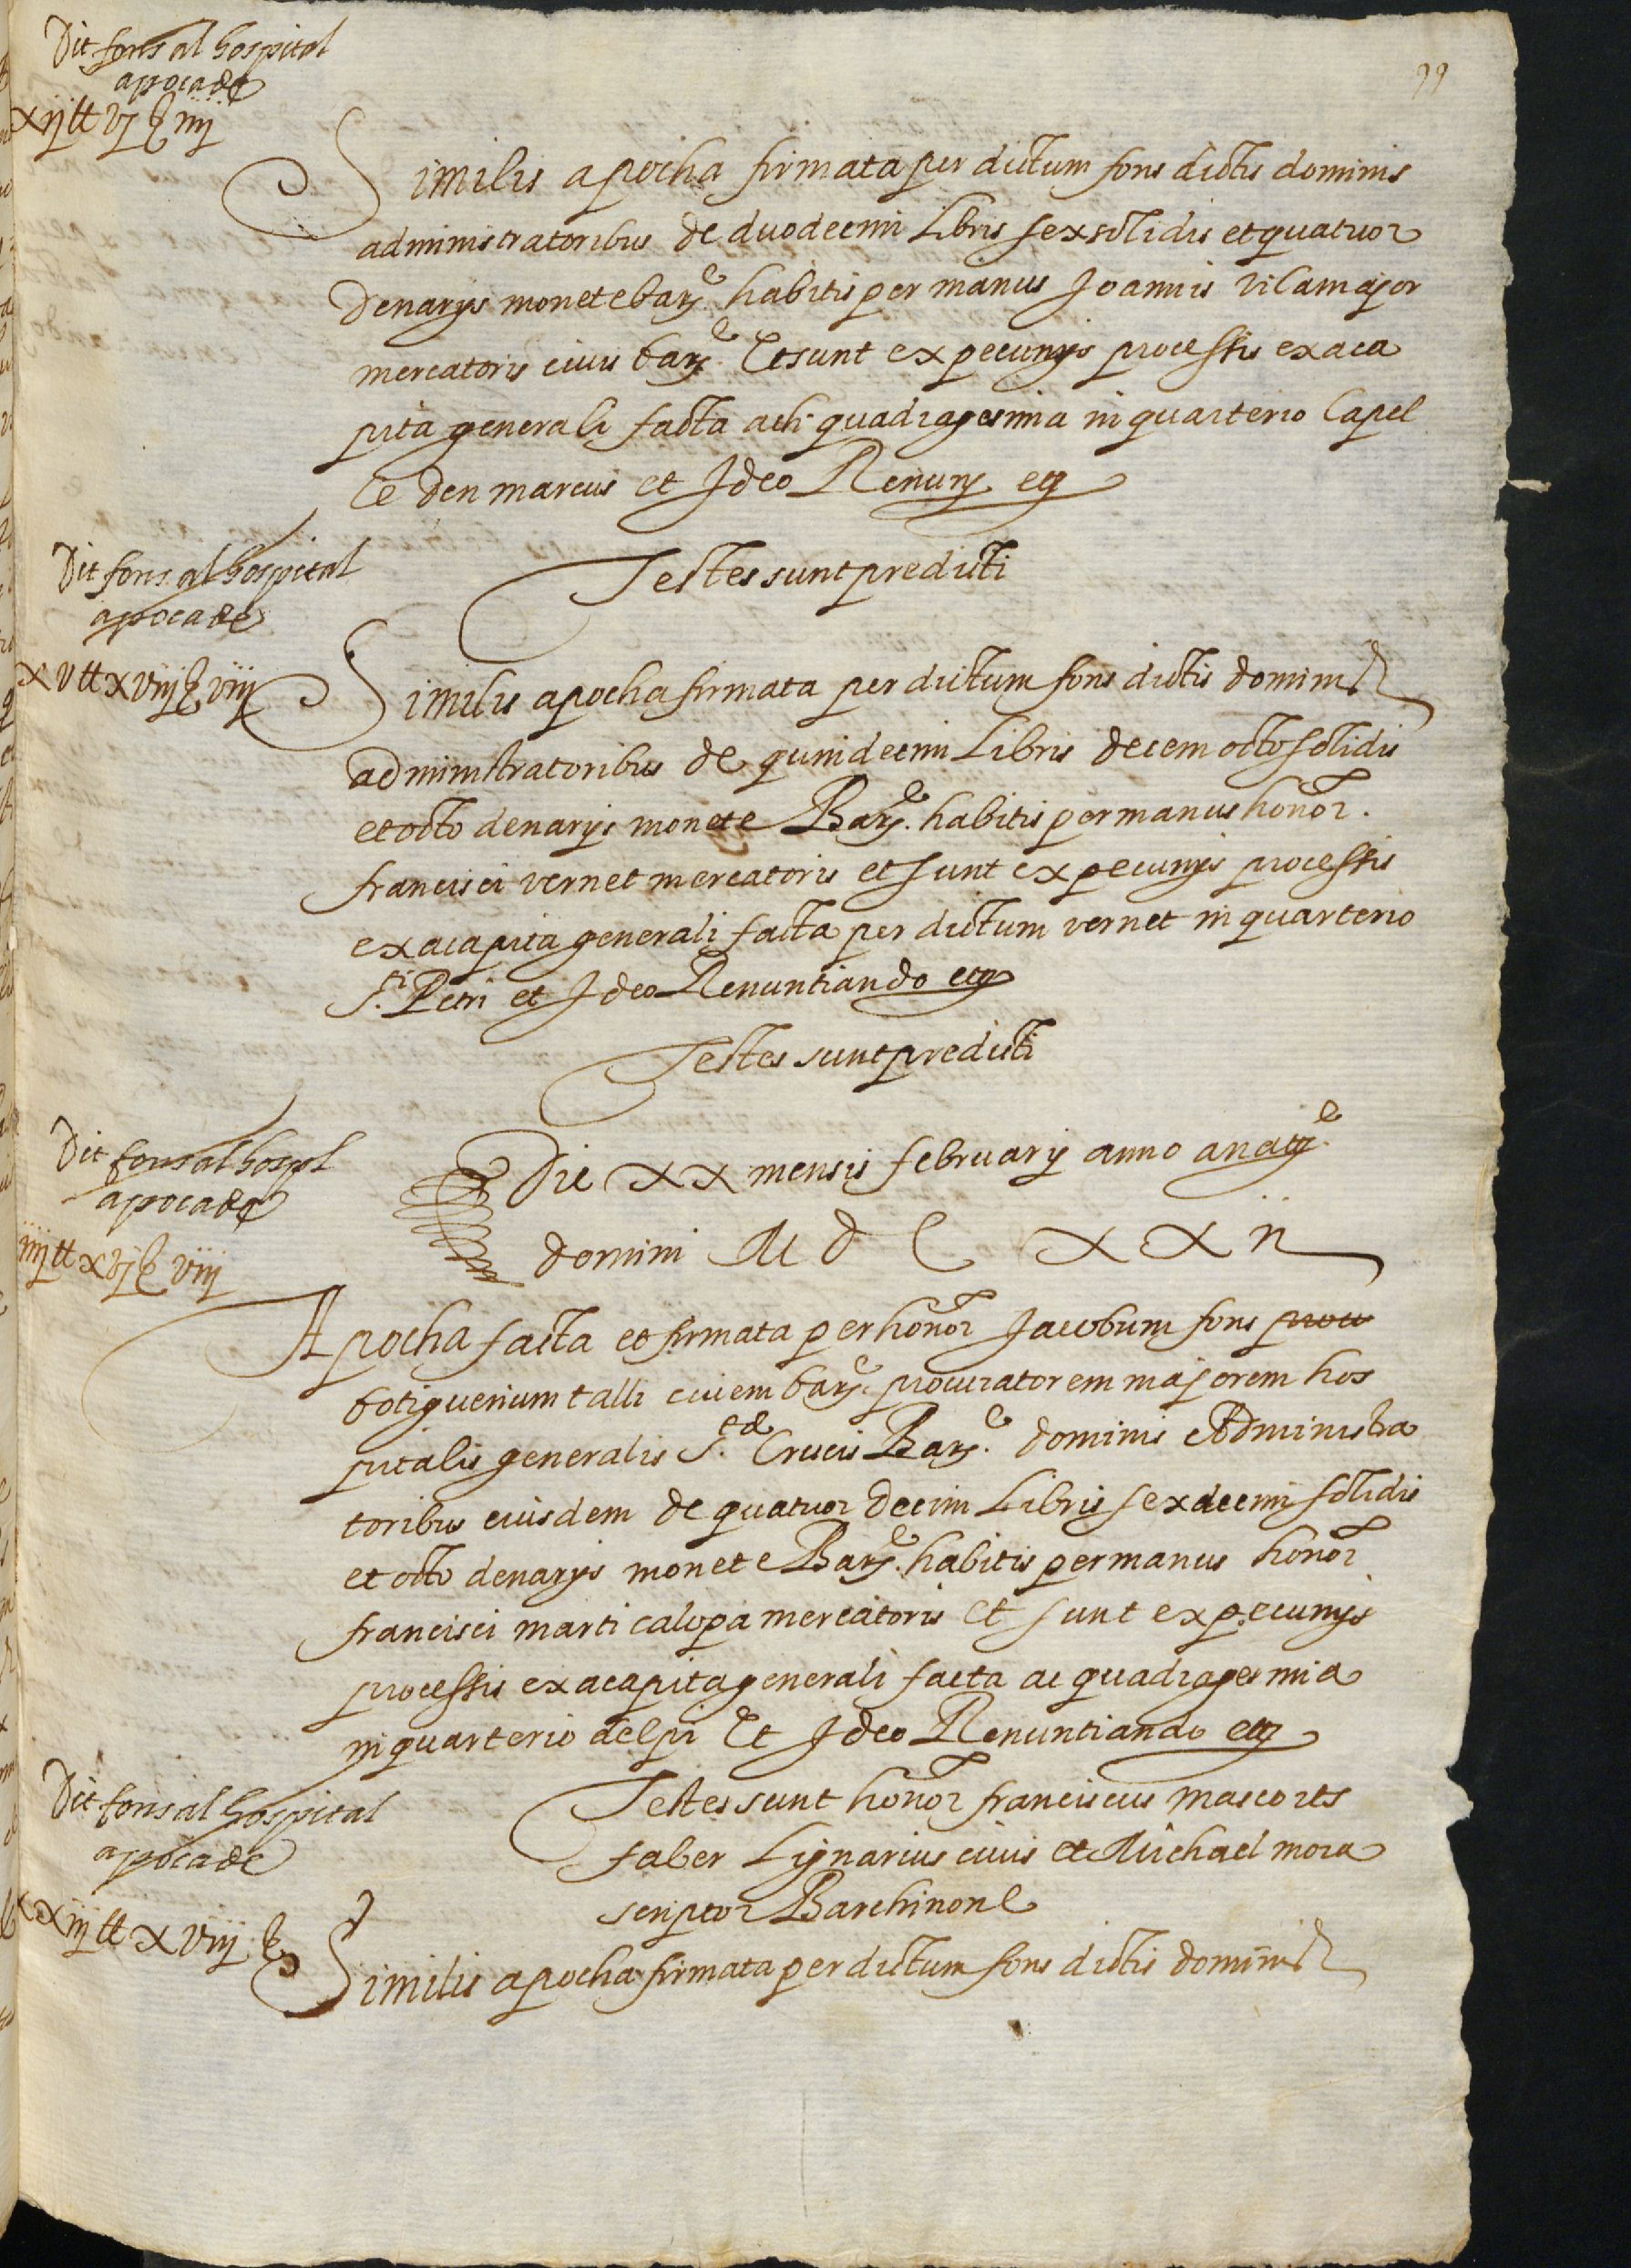 99
Dit fons al hospital
apoca de
xij ₶ vj ß iiij
Similis apocha firmata per dictum fons dictis dominis
administratoribus de duodecim Libris sex solidis et quatuor
Denarijs monete barᵉ. habitis per manus Joannis Vilamajor
mercatoris civis barᵉ. Et sunt ex pecunijs processis ex aca
pita generali facta ach quadragesima in quarterio Capel
le den marcus et Ideo Renunʒ etʒ
Testes sunt predicti
Dit fons al hospital
apoca de
xv ₶ xviij ß viij
Similis apocha firmata per dictum fons dictis dominis
administratoribus de quindecim Libris decem octo solidis
et octo denarijs monete Barᵉ. habitis per manus honor.
francisci vernet mercatoris et sunt ex pecunijs processis
ex acapita generali facta per dictum vernet in quarterio
S.ti Petri et Ideo Renuntiando etʒ
Testes sunt predicti
Die xx mensis februarij anno a natᵉ.
domini M d C xxii
Dit fons al hospl
apoca de
xvj ß viij
Apocha facta et firmata per honor Jacobum fons procu
botiguerium talli civem barᵉ. procuratorem majorem hos
pitalis generalis S.te Crucis Barᵉ. dominis Administra
toribus eiusdem de quatuor decim Libris sexdecim solidis
et octo denarijs monete Barᵉ. habitis per manus honor
francisci marti calopa mercatoris Et sunt ex pecunijs
processis ex acapita generali facta ac quadragesmia
in quarterio del pi Et Ideo Renuntiando etʒ
Testes sunt honor franciscus mascorts
faber Lignarius civis et Michael mora
scriptor Barchinone
Dit fons al hospital
apoca de
xxiij ₶ xviij ß
Similis apocha firmata per dictum fons dictis dominis